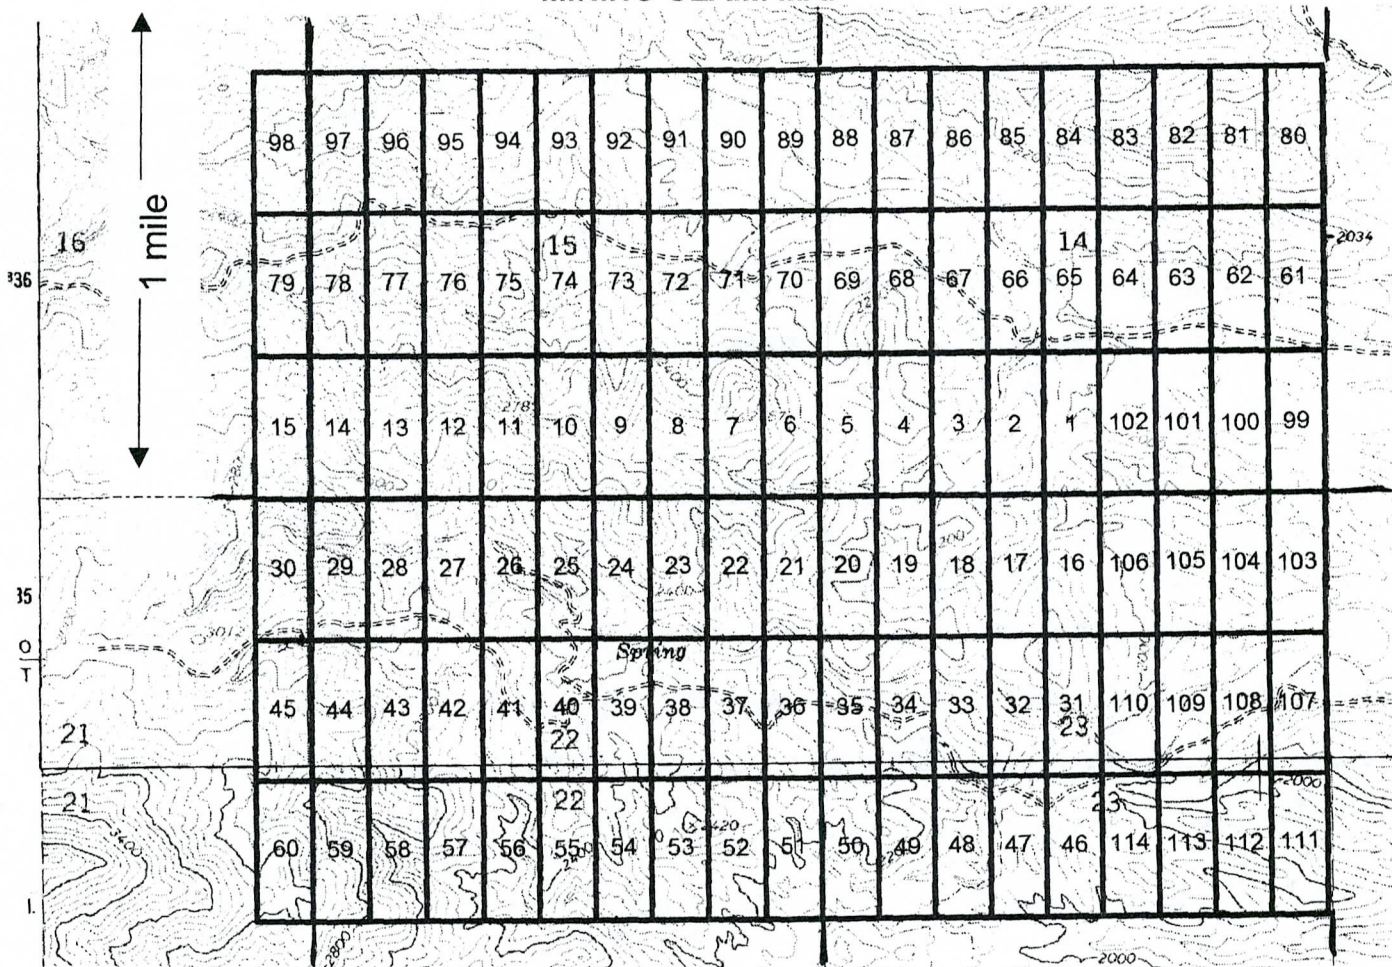 98 97 96 95 94 93 92 91 90 89 88 87 86 85 84 83 82 81 80
1 mile
16 15 14 2034
336 79 78 77 76 75 74 73 72 71 70 69 68 67 66 65 64 63 62 61
15 14 13 12 11 10 9 8 7 6 5 4 3 2 1 102 101 100 99
30 29 28 27 26 25 24 23 22 21 20 19 18 17 16 106 105 104 103
35
2400
3012
O
T
Spring
45 44 43 42 41 40 39 38 37 36 35 34 33 32 31 110 109 108 107
21 22 23
2000
21 22 23
3400 2420
60 59 58 57 56 55 54 53 52 51 50 49 48 47 46 114 113 112 111
2400
I.
2800 2000